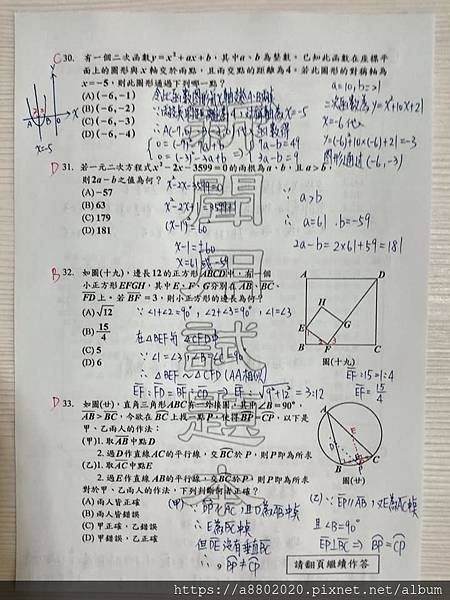 C 30. 有一個二次函數y=x²+ax+b，其中a、b為整數。已知此函數在座標平
面上的圖形與x軸交於兩點，且兩交點的距離為4。若此圖形的對稱軸為
x=-5，則此圖形通過下列哪一點？
(A) (-6, -1)
(B) (-6, -2)
(C) (-6, -3)
(D) (-6, -4)
a=10, b=21
x=-6代入
y=(-6)²+10×(-6)+21=-3
圖形通過(-6,-3)
0=(-7)²-7a+b
0=(-3)²-3a+b
7a-b=49
3a-b=9
x=-5
D 31. 若一元二次方程式x²-2x-3599=0的兩根為a、b，且a>b，
則2a-b之值為何？
(A) -57
(B) 63
(C) 179
(D) 181
x²-2x-3599=0
x²-2x+1=3599+1
x-1=±60
x=61或-59
∵ a>b
∴ a=61, b=-59
2a-b=2×61+59=181
B 32. 如圖(十九)，邊長12的正方形ABCD中，有一個
小正方形EFGH，其中E、F、G分別在AB、BC、
FD上。若BF=3，則小正方形的邊長為何？
(A) √12
(B) 15/4
(C) 5
(D) 6
∵ ∠1+∠2=90°, ∠2+∠3=90°, ∠1=∠3
在△BEF與△CFD中
∴ △BEF~△CFD (AA相似)
EF:FD=BF:CD ⇒ EF:√9²+12²=3:12
EF:15=1:4
EF=15/4
A
D
H
G
E
B
F
C
圖(十九)
D 33. 如圖(廿)，直角三角形ABC有一外接圓，其中∠B=90°，
AB>BC，今欲在BC上找一點P，使得BP=CP，以下是
甲、乙兩人的作法：
(甲)1. 取AB中點D
2. 過D作直線AC的平行線，交BC於P，則P即為所求
(乙)1. 取AC中點E
2. 過E作直線AB的平行線，交BC於P，則P即為所求
對於甲、乙兩人的作法，下列判斷何者正確？
(A) 兩人皆正確
(B) 兩人皆錯誤
(C) 甲正確，乙錯誤
(D) 甲錯誤，乙正確
A
E
D
B
C
P
圖(廿)
但DE沒有垂直BC
∴ BP≠CP
且∠B=90°
EP⊥BC ⇒ BP=CP
請翻頁繼續作答
https://a8802020.pixnet.net/album